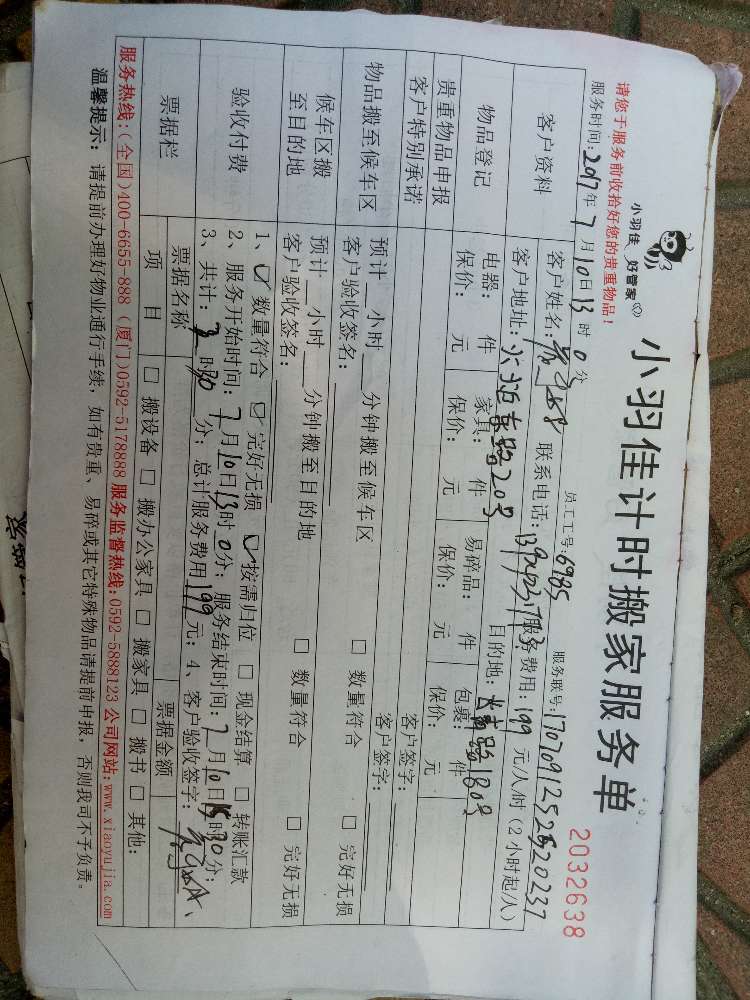 小羽佳 好管家
小羽佳计时搬家服务单
2032638
请您于服务前收拾好您的贵重物品!
员工工号:6985 服务联号:
服务时间:2017年7月10日13时0分
客户资料
客户姓名: 联系电话: 服务费用:199元/人/时(2小时起/人)
客户地址: 目的地:
物品登记
电器: 件 家具: 件 易碎品: 件 包裹: 件
保价: 元 保价: 元 保价: 元 保价: 元
贵重物品申报
客户签字:
客户特别承诺
客户签字:
物品搬至候车区
预计__小时__分钟搬至候车区 □ 数量符合 □ 完好无损
客户验收签名:
候车区搬至目的地
预计__小时__分钟搬至目的地 □ 数量符合 □ 完好无损
客户验收签名:
验收付费
1、☑ 数量符合 ☑ 完好无损 ☑ 按需归位 □ 现金结算 □ 转账汇款
2、服务开始时间:7月10日13时0分;服务结束时间:7月10日15时30分;
3、共计: 时30分;总计服务费用199元;4、客户验收签字:
票据栏
票据名称 票据金额
项目 □ 搬设备 □ 搬办公家具 □ 搬家具 □ 搬书 □ 其他:
服务热线:(全国)400-6655-888 (厦门)0592-5178888 服务监督热线:0592-5888123 公司网站:www.xiaoyujia.com
温馨提示: 请提前办理好物业通行手续,如有贵重、易碎或其它特殊物品请提前申报,否则我司不予负责。